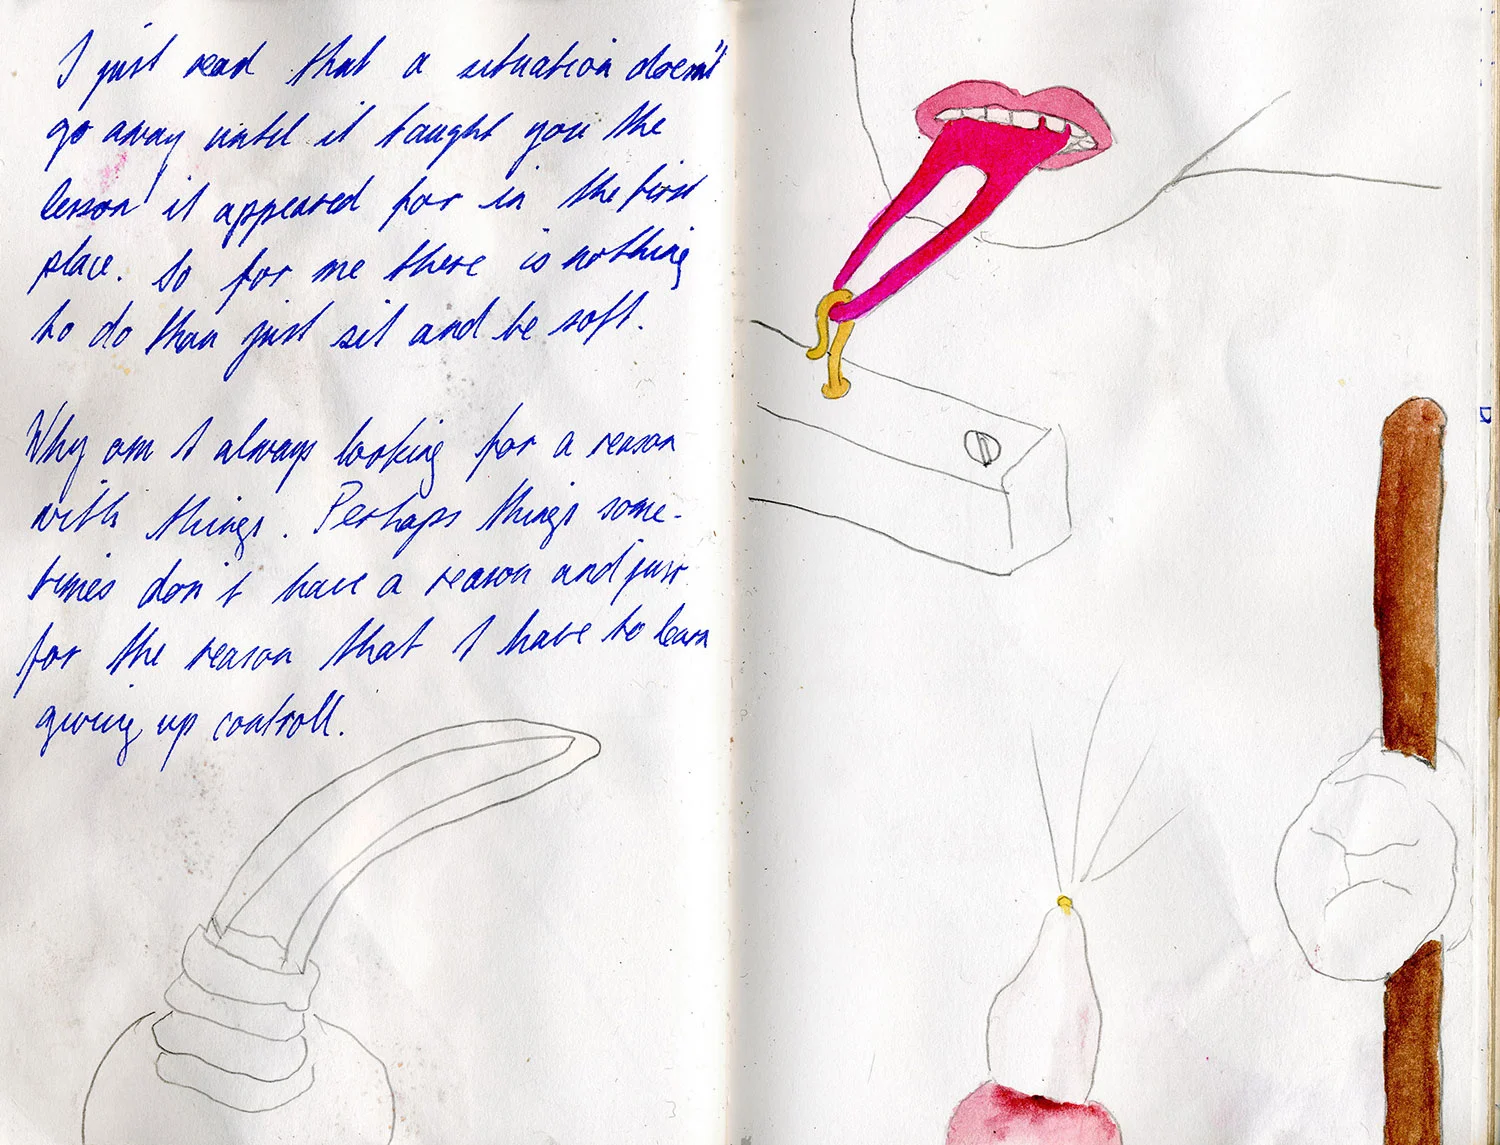 I just read that a situation doesn't
go away until it taught you the
lesson it appeared for in the first
place. So for me there is nothing
to do than just sit and be soft.
Why am I always looking for a reason
with things. Perhaps things some-
times don't have a reason and just
for the reason that I have to learn
giving up controll.